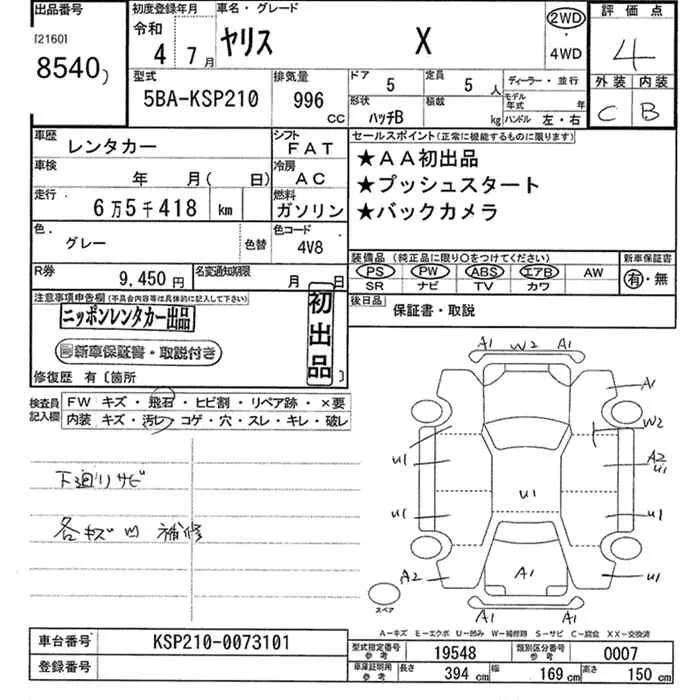 出品番号
[2160]
8540)
初度登録年月
令和
4 7月
車名・グレード
ヤリス X
2WD
・
4WD
評価点
4
外装 内装
C B
型式
5BA-KSP210
排気量
996 CC
ドア 5
定員 5 人
形状 ハッチB
積載 kg
ディーラー・並行
モデル年式 年
ハンドル 左・右
車歴 レンタカー
シフト FAT
車検 年 月( 日)
冷房 AC
走行 6万5千418 km
燃料 ガソリン
色 グレー 色替
色コード 4V8
R券 9,450円
名変通知期限 月 日
セールスポイント(正常に機能するものに限ります)
★AA初出品
★プッシュスタート
★バックカメラ
装備品 (純正品に限り○をつけてください)
PS PW ABS エアB AW
SR ナビ TV カワ
新車保証書
有・無
後日品 保証書・取説
注意事項申告欄(不具合内容等は具体的に記入して下さい)
ニッポンレンタカー出品
新車保証書・取説付き
初出品
修復歴 有〔箇所 〕
検査員記入欄
FW キズ・飛石・ヒビ割・リペア跡・×要
内装 キズ・汚レ・コゲ・穴・スレ・キレ・破レ
下廻りサビ
各キズ凹 補修
A1 W2 A1
A1
W2
U1 A2
U1
U1
U1 U1
A2 A1 U1
A1 A1
スペア
A-キズ E-エクボ U-凹み W-補修跡 S-サビ C-腐食 XX-交換済
車台番号 KSP210-0073101
登録番号
型式指定番号 参考 19548
類別区分番号 参考 0007
車庫証明用 参考 長さ 394 cm 幅 169 cm 高さ 150 cm